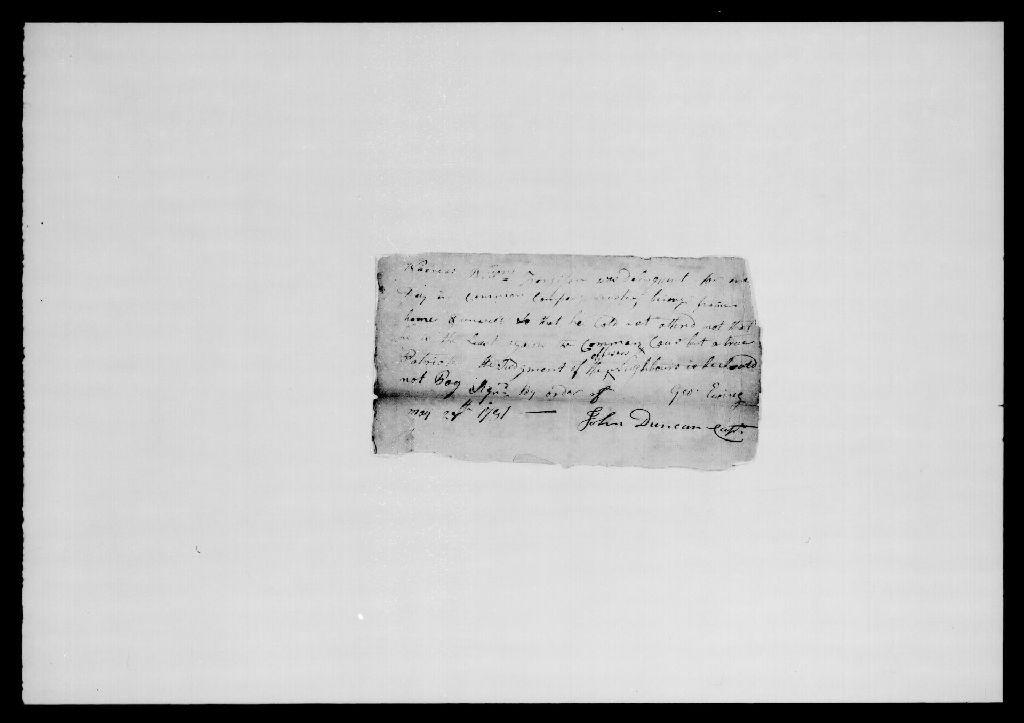 Whereas Wm was delinquent for one
Day in common Company muster, being from
home so that he Cold not attend not that
he is the least again our Common Caus but a true
Patriot the Judgment of the officers Neighbours is he should
not Pay by order of Geo: Ewing
may 1781 — John Duncan Capt